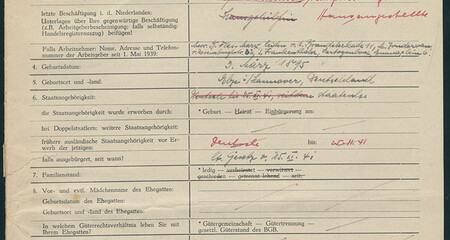 letzte Beschäftigung i. d. Niederlanden:
Unterlagen über Ihre gegenwärtige Beschäftigung
(z.B. Arbeitgeberbescheinigung, falls selbständig:
Handelsregisterauszug) beifügen!
Hausgehilfin
Falls Arbeitnehmer: Name, Adresse und Telefon-
nummer der Arbeitgeber seit 1. Mai 1939:
4. Geburtsdatum:
3. März 1895
5. Geburtsort und -land:
Hannover, Deutschland
6. Staatsangehörigkeit:
Deutsch bis 25.XI.41, seitdem staatenlos
die Staatsangehörigkeit wurde erworben durch:
* Geburt — Heirat — Einbürgerung am:
bei Doppelstaatlern: weitere Staatsangehörigkeit:
frühere ausländische Staatsangehörigkeit vor Er-
werb der jetzigen:
Deutsche bis 25-11-41
Falls ausgebürgert, seit wann?
lt. Gesetz v. 25.XI.41
7. Familienstand:
* ledig — verheiratet — verwitwet —
geschieden — getrennt lebend — seit:
8. Vor- und evtl. Mädchenname des Ehegatten:
Geburtsdatum des Ehegatten:
Geburtsort und -land des Ehegatten:
In welchem Güterrechtsverhältnis leben Sie mit
Ihrem Ehegatten?
* Gütergemeinschaft — Gütertrennung —
gesetzl. Güterstand des BGB.